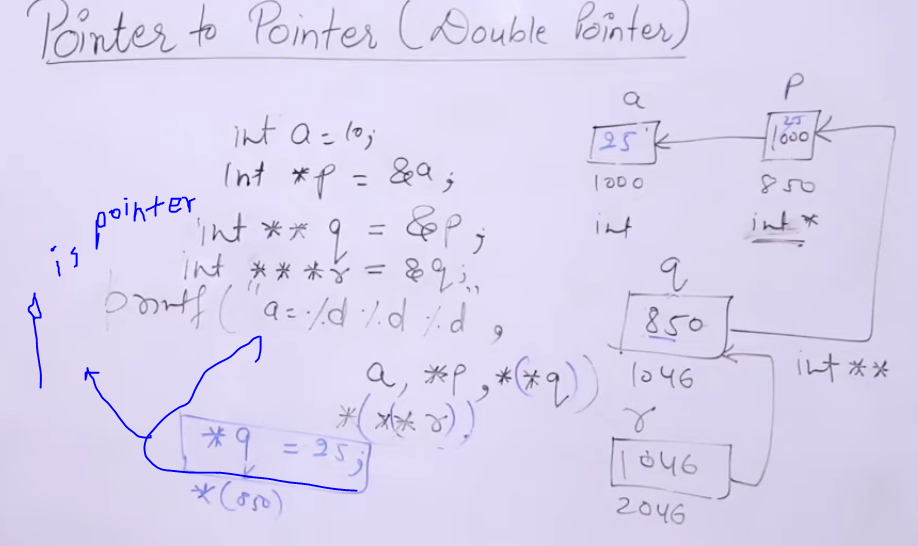 Pointer to Pointer (Double Pointer)
int a = 10;
int *p = &a;
int ** q = &p;
int ***r = &q;
printf("a=%d %d %d",
a, *p, *(*q))
*(*(*r))
*q = 25;
*(850)
is pointer
a
25
1000
int
p
25
1000
850
int *
q
850
1046
int **
r
1046
2046